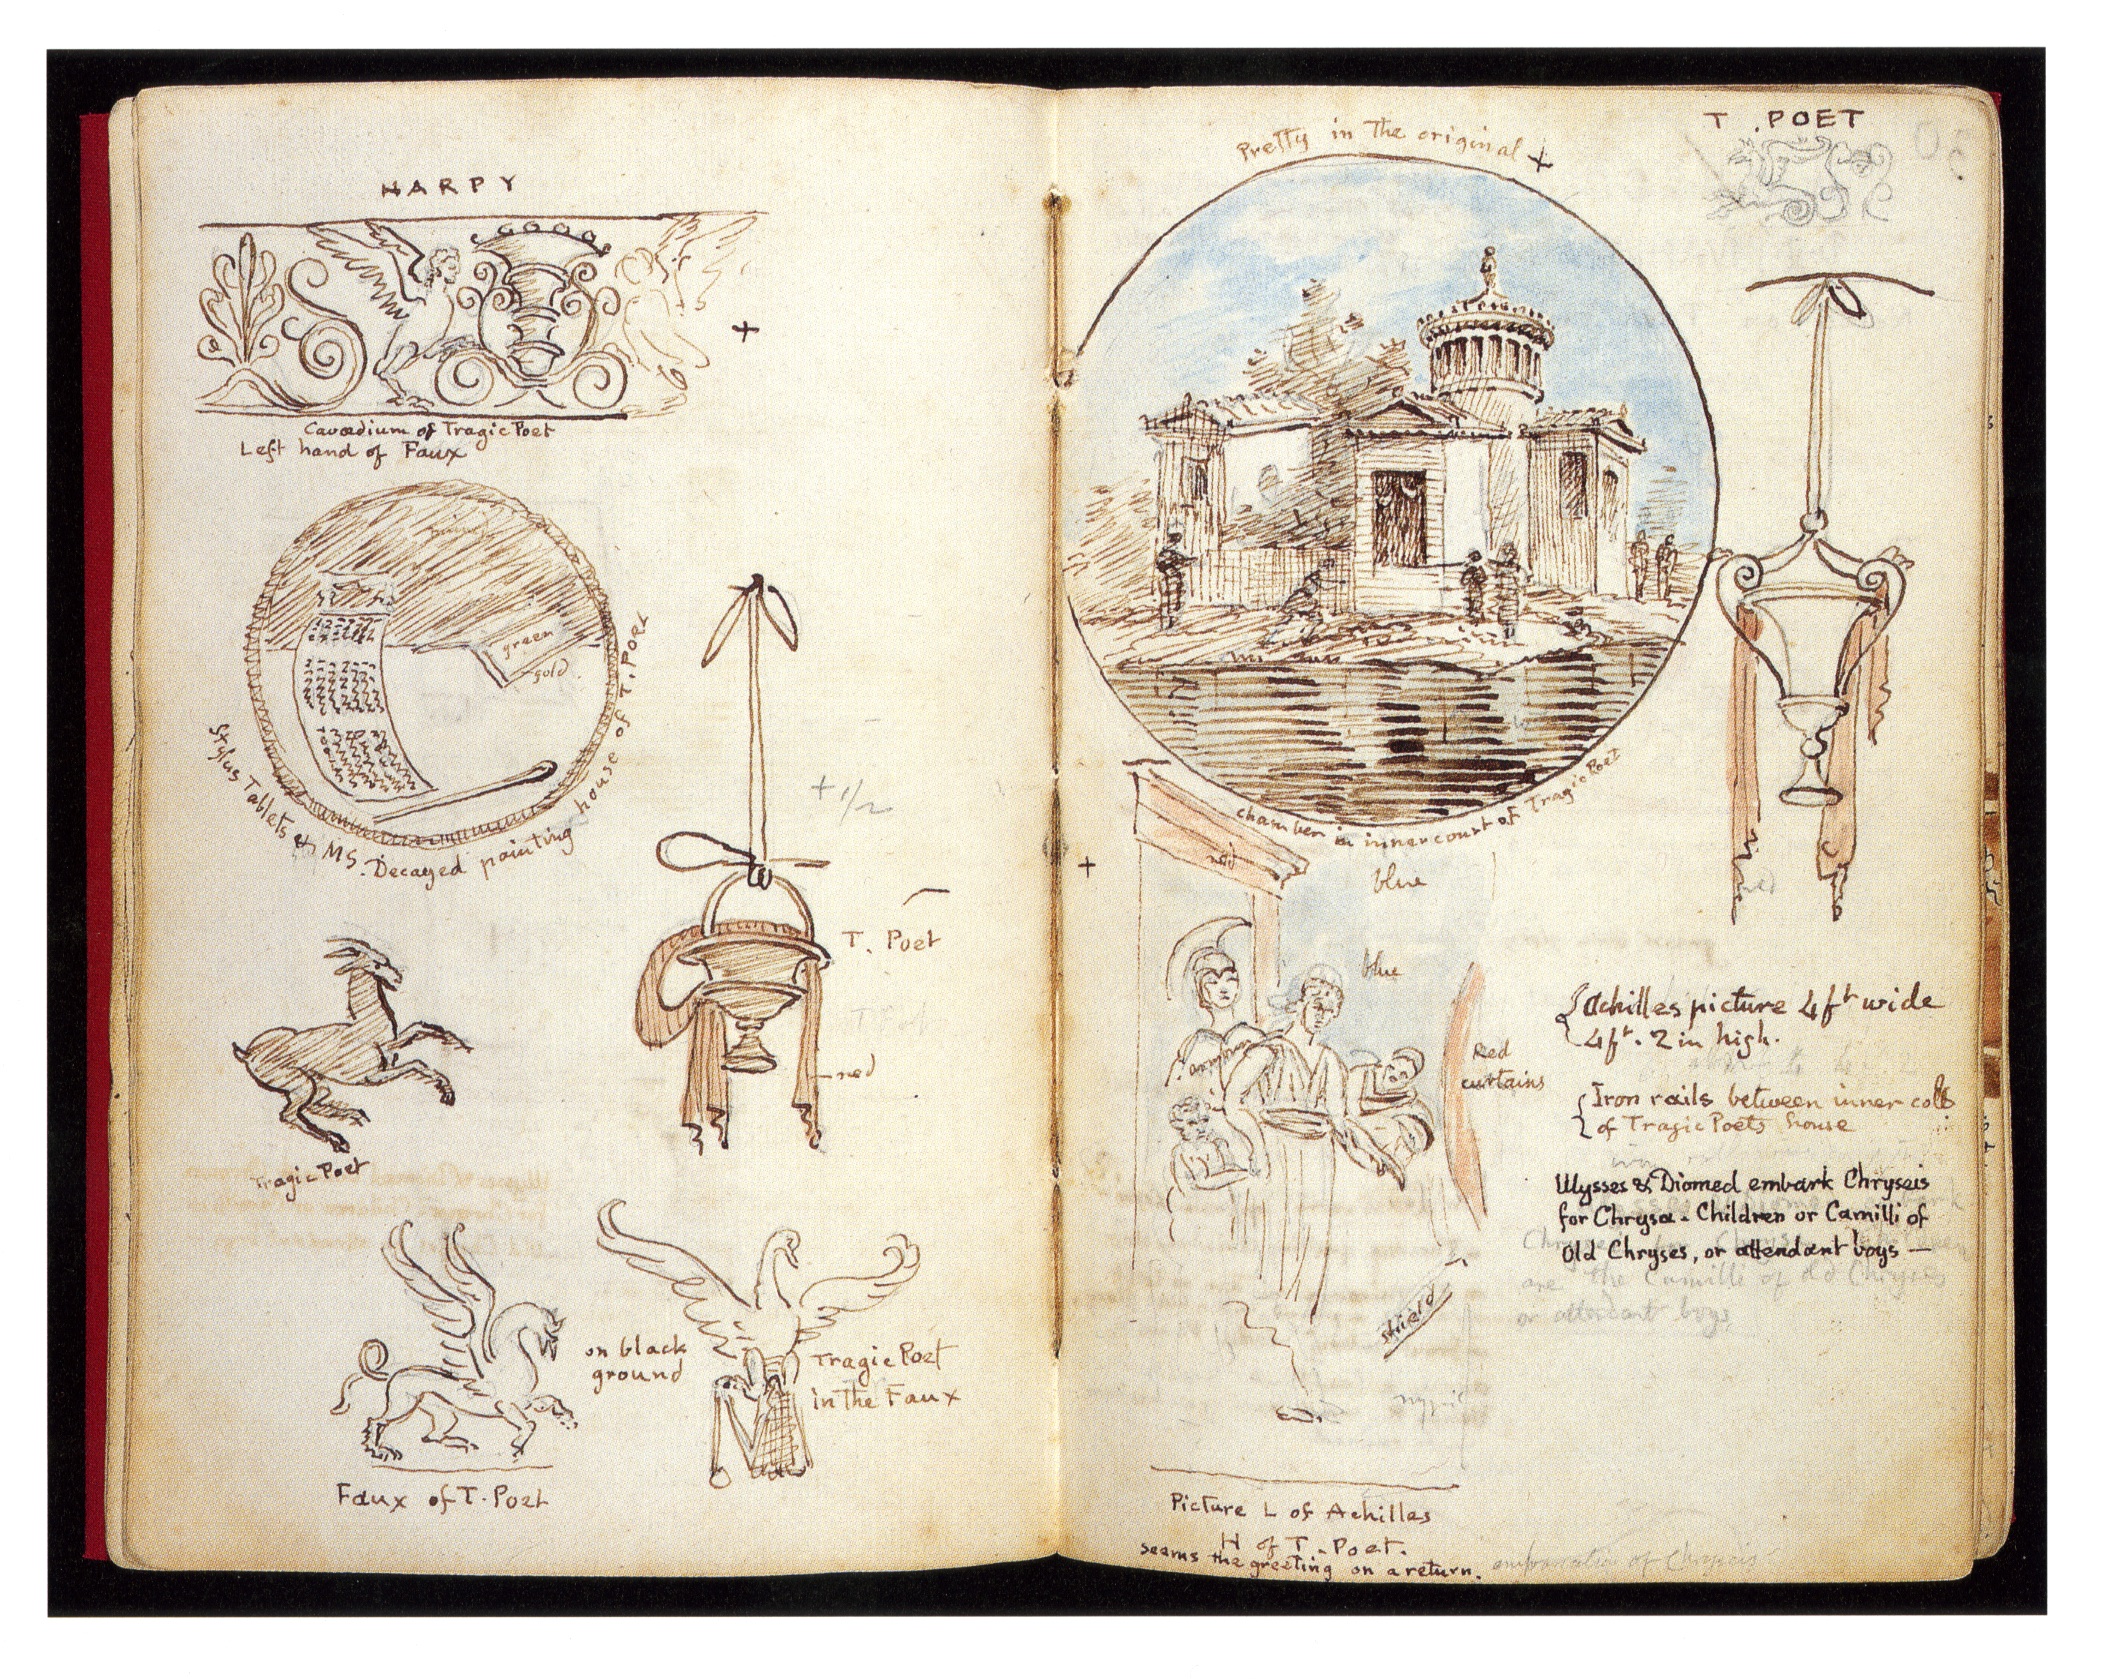 HARPY
Cavædium of Tragic Poet
Left hand of Faux
green
gold
Stylus Tablets & MS. Decayed painting house of T. Poet
+1/2
T. Poet
red
Tragic Poet
on black
ground
Faux of T. Poet
Tragic Poet
in the Faux
T. POET
Pretty in the original
chamber in inner court of Tragic Poet
red
blue
blue
Red
curtains
red
shield
Achilles picture 4 ft wide
4 ft. 2 in high.
Iron rails between inner cols
of Tragic Poets house
Ulysses & Diomed embark Chryseis
for Chrysa - Children or Camilli of
Old Chryses, or attendant boys —
are the Camilli of old Chryses
or attendant boys
Picture L of Achilles
H of T. Poet.
seems the greeting on a return.
embarcation of Chryseis